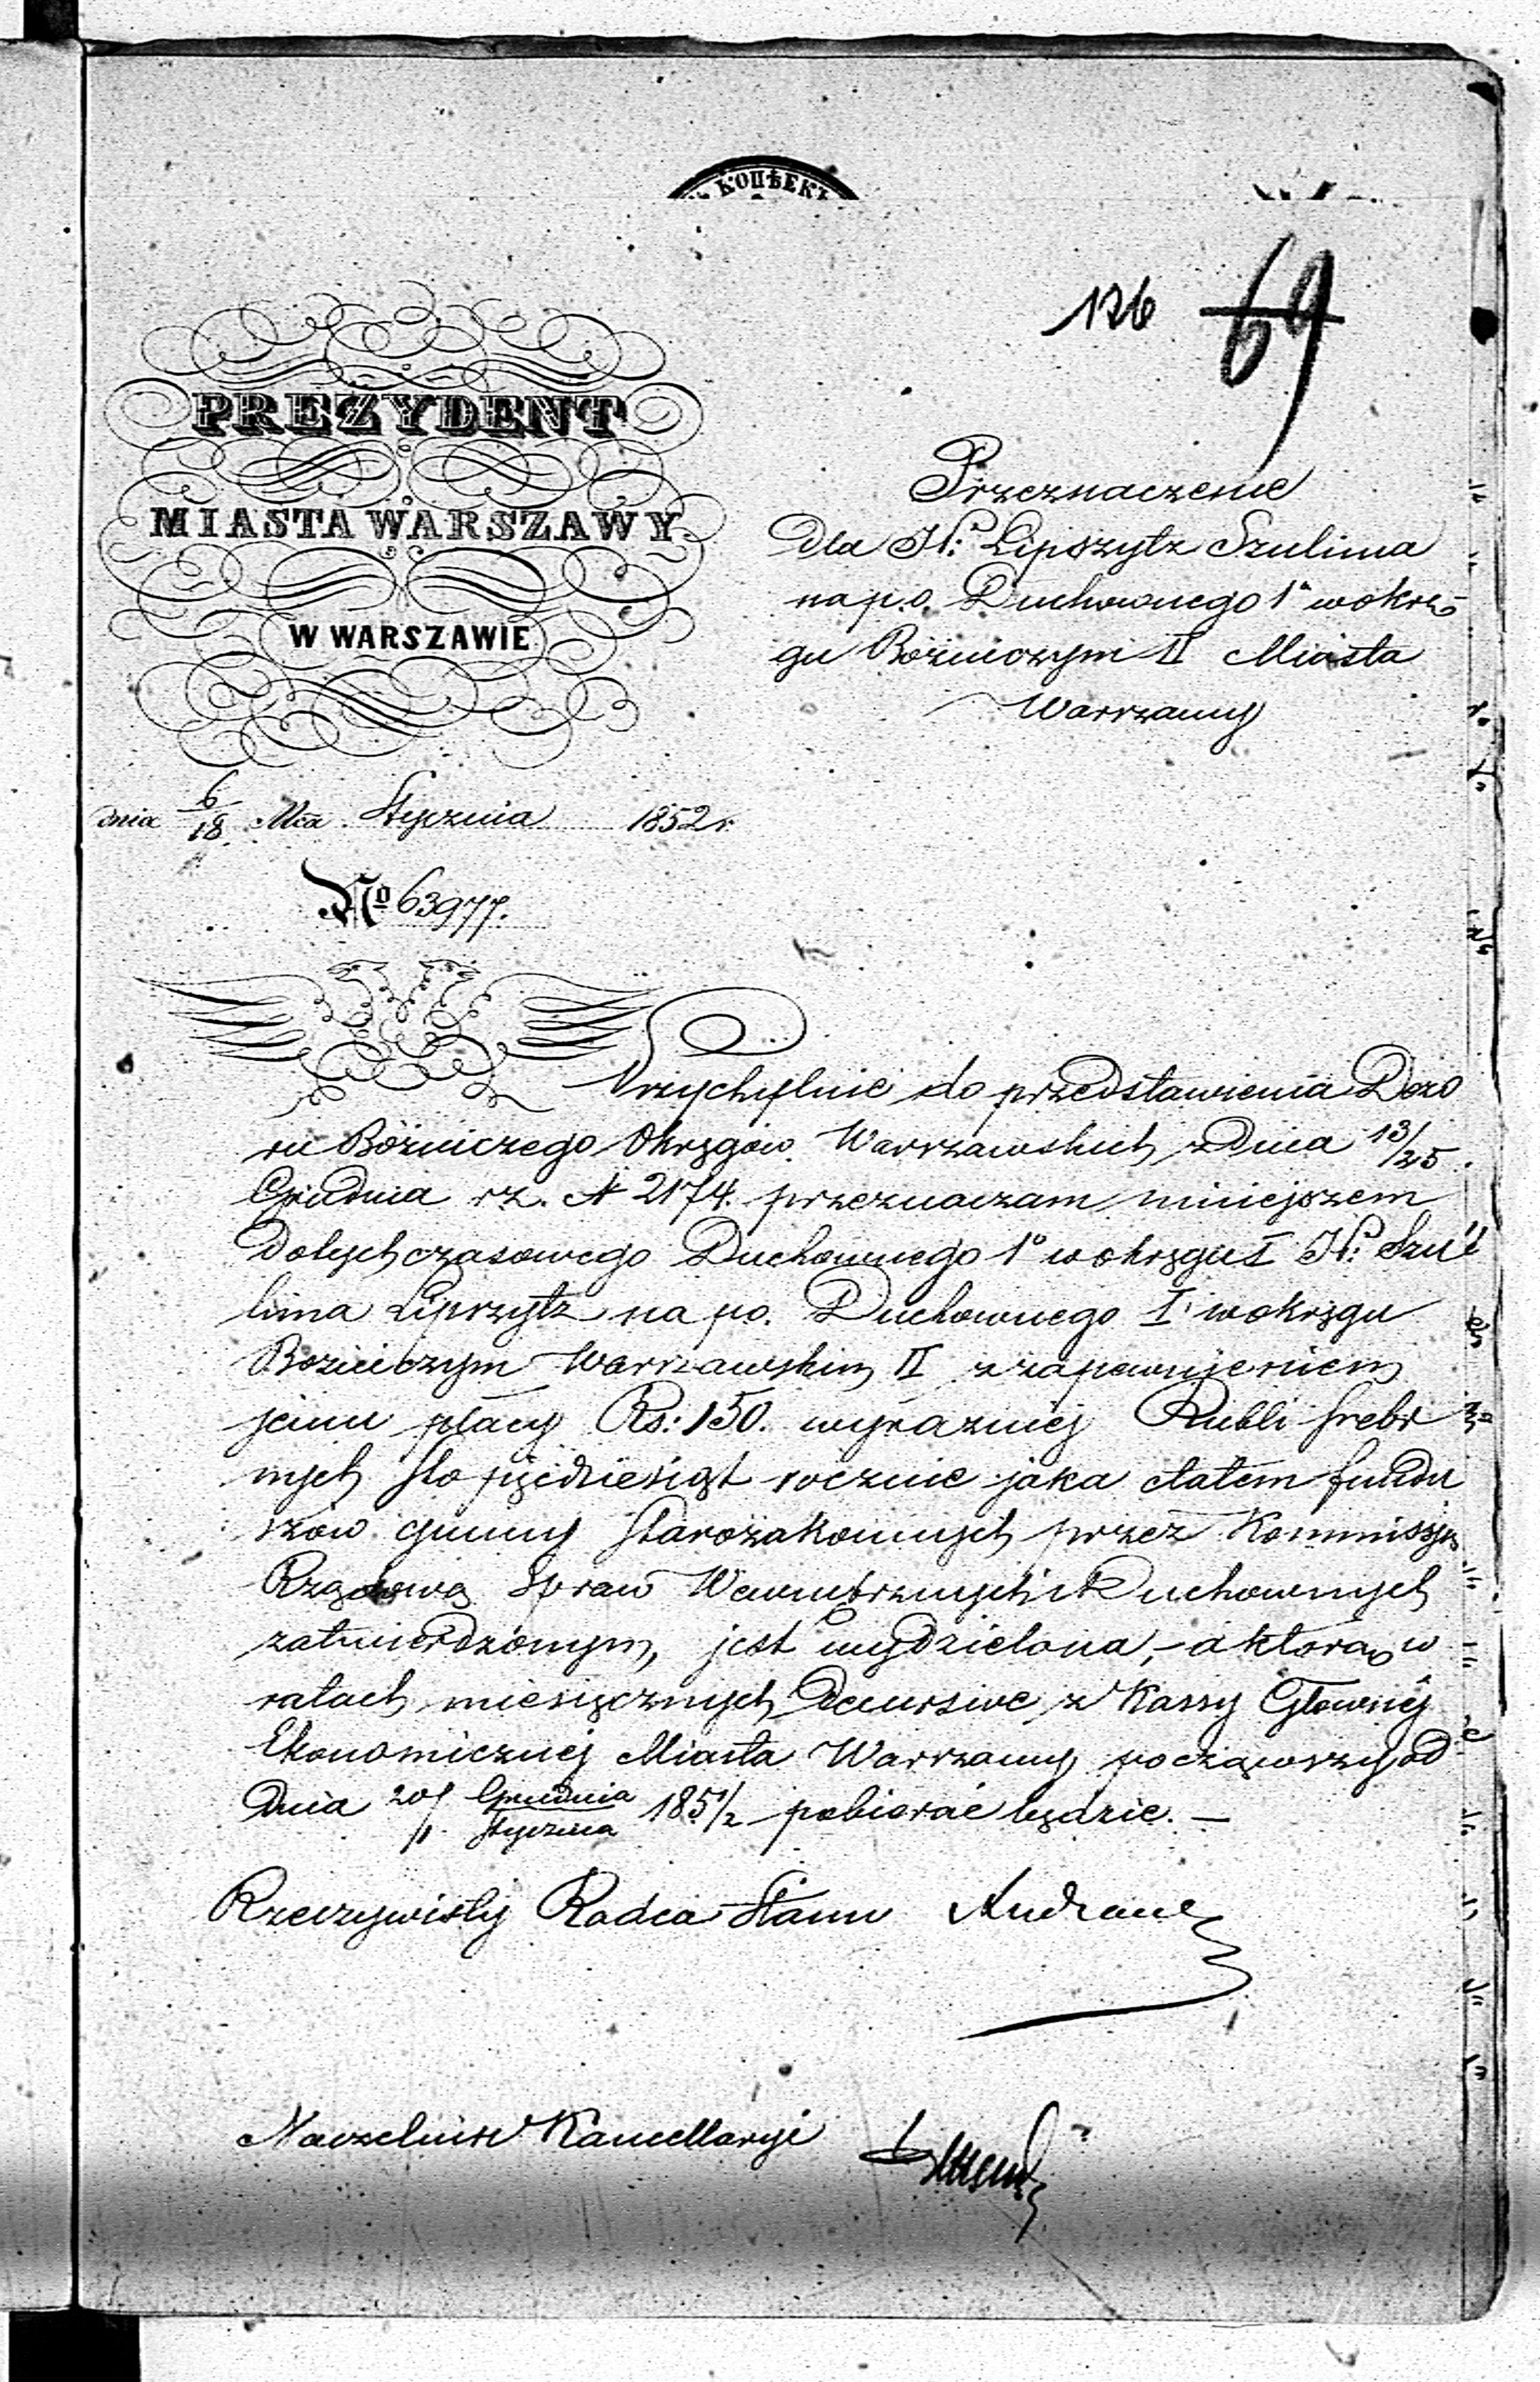 КОПѢЕКЪ
126 69
PREZYDENT
MIASTA WARSZAWY
W WARSZAWIE
dnia 6/18 Mca Stycznia 1852 r.
No 63977.
Przeznaczenie
dla St: Lipszytz Szulima
na p.o. Duchownego 1o w okrę
gu Bóżniczym II Miasta
Warszawy
Przychylnie do przedstawienia Dozo
ru Bóżniczego Okręgów Warszawskich z dnia 13/25
Grudnia rz. N 2174. przeznaczam niniejszem
dotychczasowego Duchownego 1o w okręgu I St: Szu
lima Lipszytz na po. Duchownego I w okręgu
Bożniczym Warszawskim II z zapewnieniem
jemu płacy Rs: 150. wyraźniej Rubli srebr
nych sto pięćdziesiąt rocznie jaka etatem fundu
szów gminy Starozakonnych przez Kommissyę
Rządową Spraw Wewnętrznych i Duchownych
zatwierdzonym, jest wydzielona, - a którą w
ratach miesięcznych decursive z Kassy Głównej
Ekonomicznej Miasta Warszawy począwszy od
dnia 20/1 Grudnia/Stycznia 185 1/2 pobierać będzie. —
Rzeczywisty Radca Stanu Andrault
Naczelnik Kancellaryi